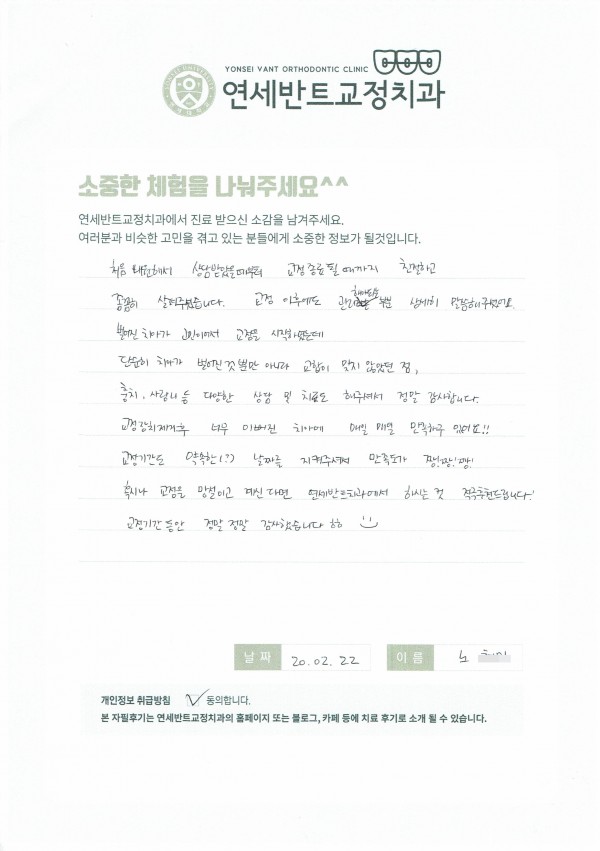 YONSEI VANT ORTHODONTIC CLINIC
연세반트교정치과
소중한 체험을 나눠주세요^^
연세반트교정치과에서 진료 받으신 소감을 남겨주세요.
여러분과 비슷한 고민을 겪고 있는 분들에게 소중한 정보가 될것입니다.
처음 내원해서 상담받았을때부터 교정종료될때까지 친절하고
꼼꼼히 살펴주셨습니다. 교정 이후에도 관리해야할 부분 상세히 말씀해주셨어요.
벌어진 치아가 고민이어서 교정을 시작하였는데
단순히 치아가 벌어진것뿐만 아니라 교합이 맞지 않았던 점,
충치, 사랑니 등 다양한 상담 및 치료도 해주셔서 정말 감사합니다.
교정장치제거후 너무 이뻐진 치아에 매일 매일 만족하구 있어요!!
교정기간도 약속한(?) 날짜를 지켜주셔서 만족도가 짱!짱!짱!
혹시나 교정을 망설이고 계신다면 연세반트치과에서 하시는 것 적극추천드립니다!
교정기간동안 정말 정말 감사했습니다 ㅎㅎ
날 짜 20.02.22 이 름 노
개인정보 취급방침 동의합니다.
본 자필후기는 연세반트교정치과의 홈페이지 또는 블로그, 카페 등에 치료 후기로 소개 될 수 있습니다.